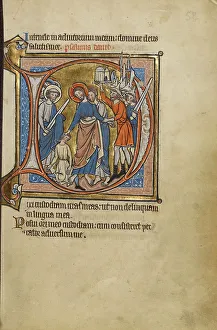 Intende in adiutorium meum: domine deus
salutis mee. psalmus david
D
ixi custodiam uias meas: ut non delinquam
in lingua mea.
Posui ori meo custodiam: cum consisteret pec
cator aduersum me.